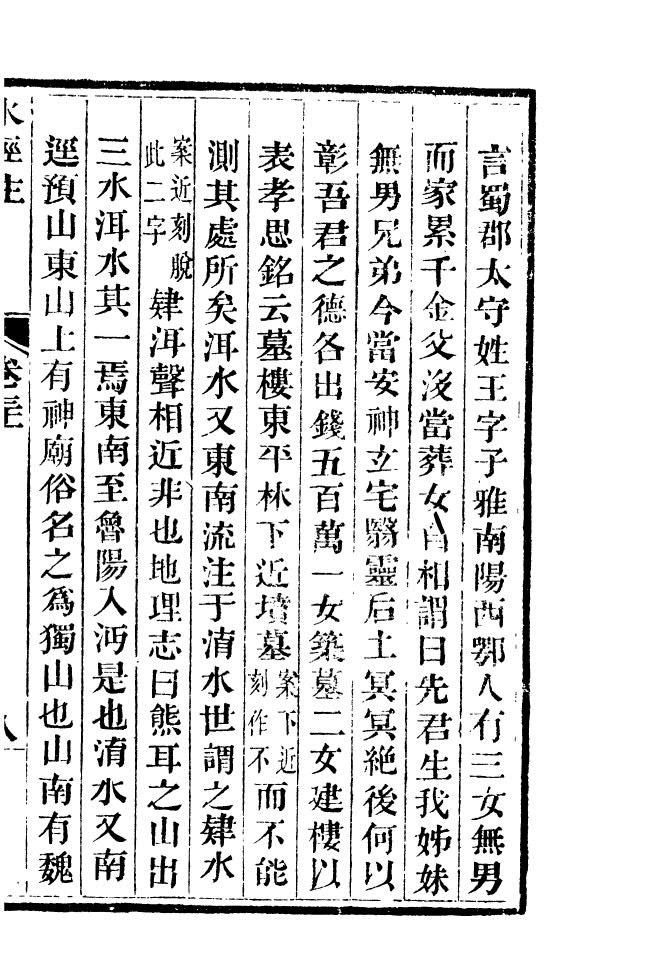 言蜀郡太守姓王字子雅南陽西鄂人有三女無男
而家累千金父沒當葬女自相謂曰先君生我姊妹
無男兄弟今當安神立宅翳靈后土冥冥絶後何以
彰吾君之德各出錢五百萬一女築墓二女建樓以
表孝思銘云墓樓東平林下近墳墓案下近刻作不而不能
測其處所矣洱水又東南流注于淯水世謂之肄水
案近刻脫此二字肄洱聲相近非也地理志曰熊耳之山出
三水洱水其一焉東南至魯陽入沔是也淯水又南
逕預山東山上有神廟俗名之爲獨山也山南有魏
水經注 卷三十一 八